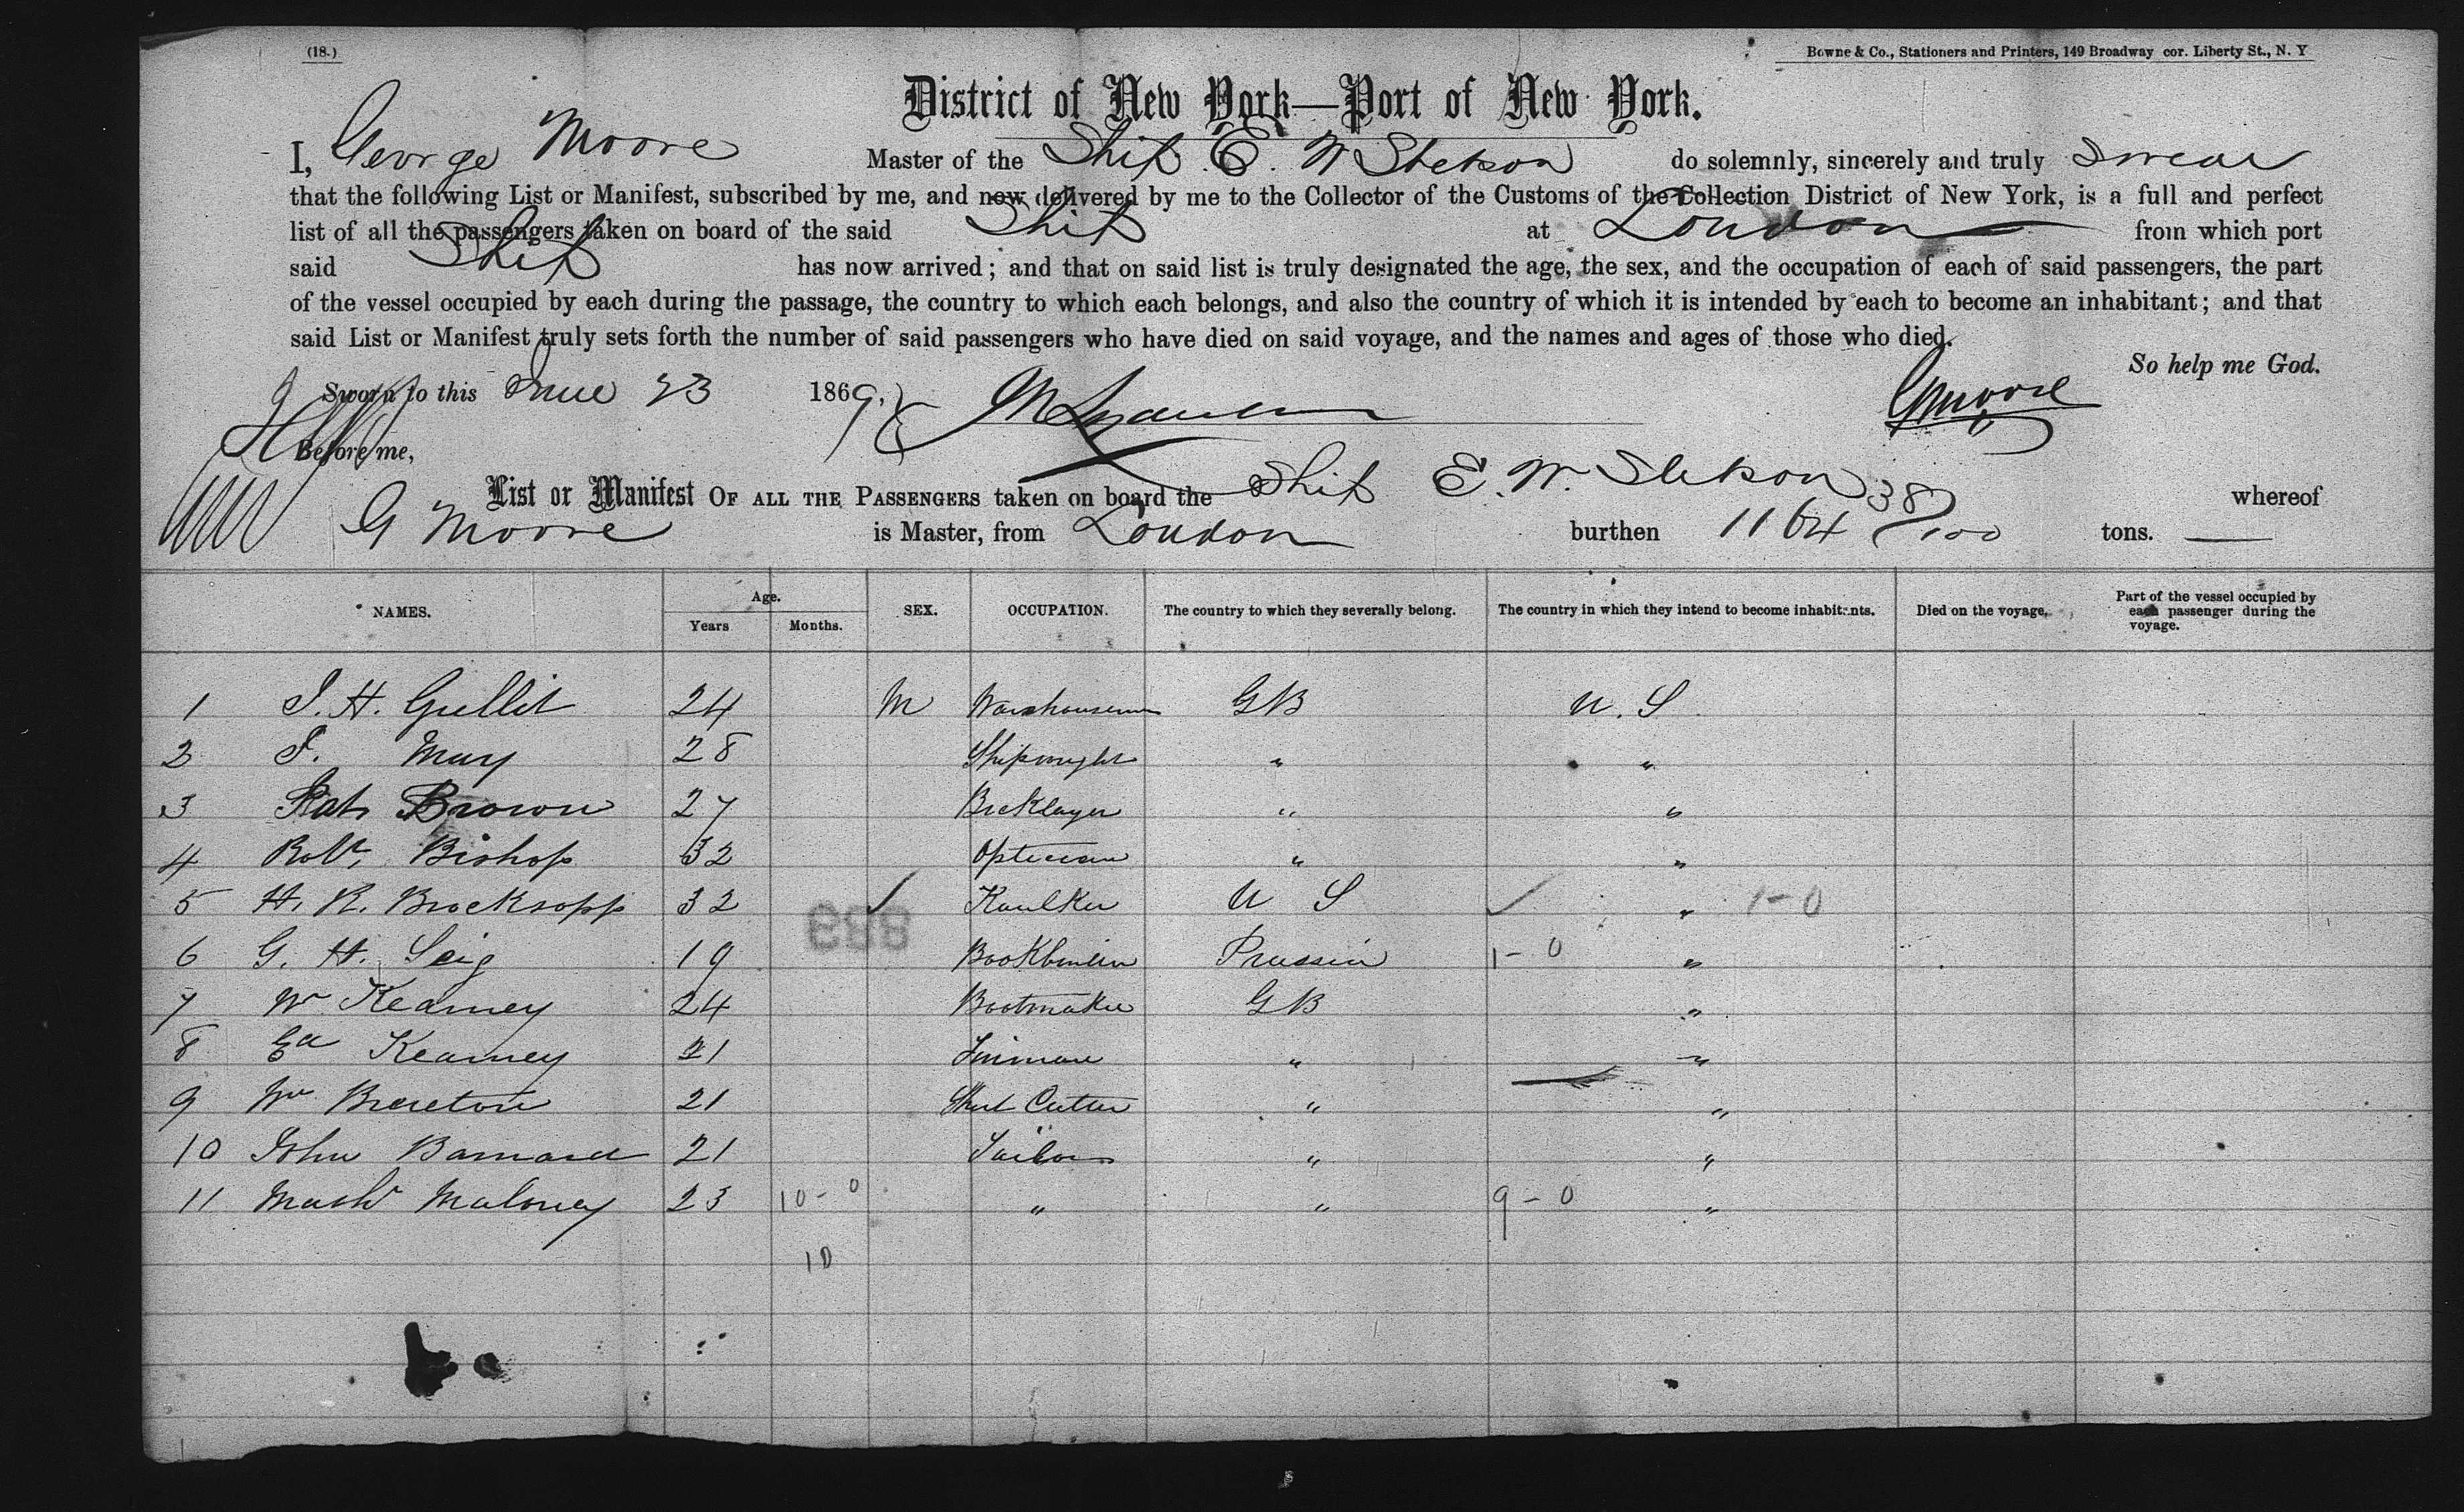 (18.)
Bowne & Co., Stationers and Printers, 149 Broadway cor. Liberty St., N. Y
District of New York—Port of New York.
I, George Moore Master of the Ship E. W Stetson do solemnly, sincerely and truly swear
that the following List or Manifest, subscribed by me, and now delivered by me to the Collector of the Customs of the Collection District of New York, is a full and perfect
list of all the passengers taken on board of the said Ship at London from which port
said Ship has now arrived; and that on said list is truly designated the age, the sex, and the occupation of each of said passengers, the part
of the vessel occupied by each during the passage, the country to which each belongs, and also the country of which it is intended by each to become an inhabitant; and that
said List or Manifest truly sets forth the number of said passengers who have died on said voyage, and the names and ages of those who died.
So help me God.
Sworn to this June 23 1869,
GMoore
Before me,
List or Manifest OF ALL THE PASSENGERS taken on board the Ship E. W. Stetson whereof
G Moore is Master, from London burthen 1164 38/100 tons.
NAMES. Age. Years Months. SEX. OCCUPATION. The country to which they severally belong. The country in which they intend to become inhabitants. Died on the voyage. Part of the vessel occupied by each passenger during the voyage.
1 J. H. Gullit 24 M Warehouseman GB U. S
2 J. May 28 Shipwright " "
3 Pat Brown 27 Bricklayer " "
4 Robt. Bishop 32 Optician " "
5 H. R. Brocksopp 32 ✓ Kaulker U S ✓ " 1-0
6 G. H. Seig 19 Bookbinder Prussia 1-0 "
7 Wm Kearney 24 Bootmaker GB "
8 Ed Kearney 21 " "
9 Wm Brereton 21 Cutter " "
10 John Barnard 21 Tailor " "
11 Maloney 23 10-0 " " 9-0 "
10